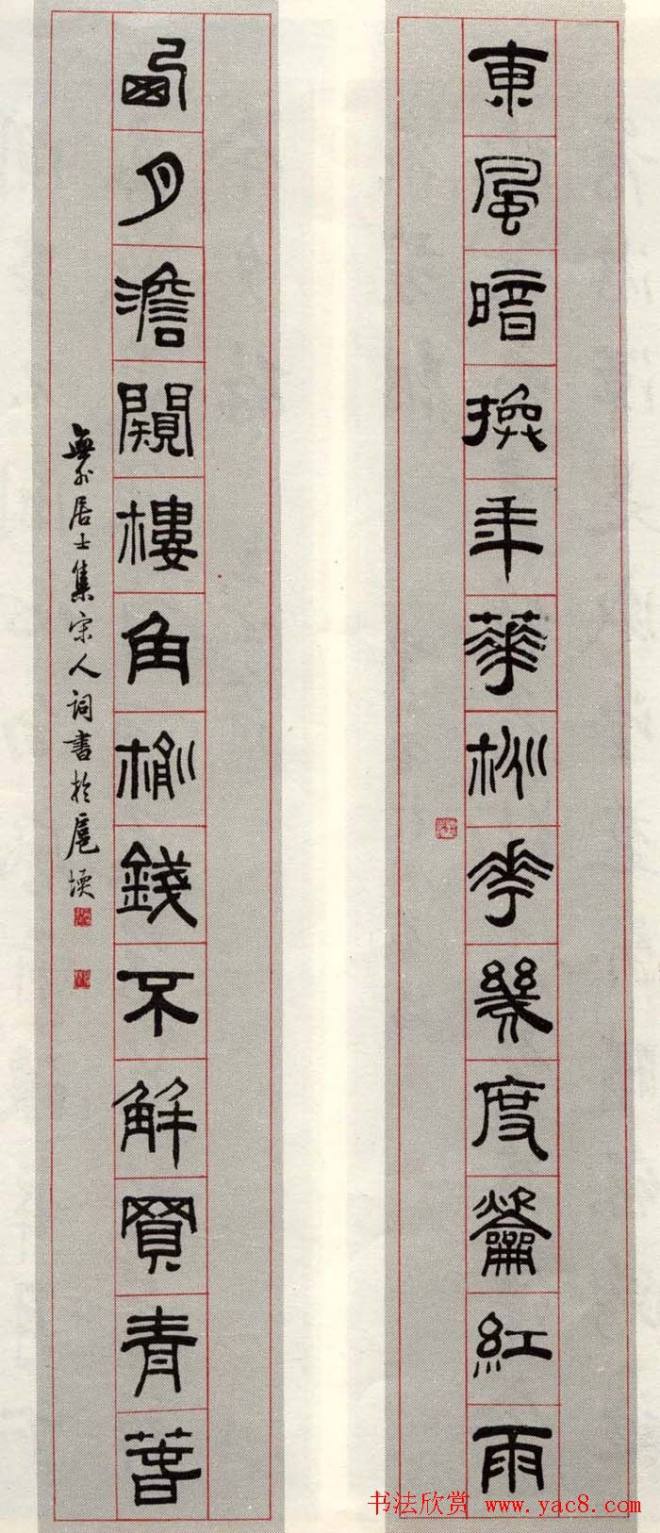 東風暗換年華桃花幾度龡紅雨
西月澹闚樓角榆錢不解買青春
無外居士集宋人詞書於扈瀆
书法欣赏 www.yac8.com